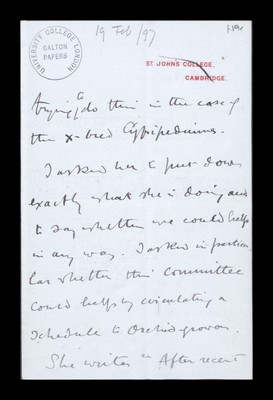 UNIVERSITY COLLEGE LONDON
GALTON
PAPERS
19 Feb/97
ST JOHN'S COLLEGE,
CAMBRIDGE.
trying to do this in the case of
the x-bred Cypripediums.
I asked her to put down
exactly what she is doing and
to say whether we could help
in any way. I asked in particu
lar whether this committee
could help by circulating a
schedule to Orchid growers.
She writes "After recent